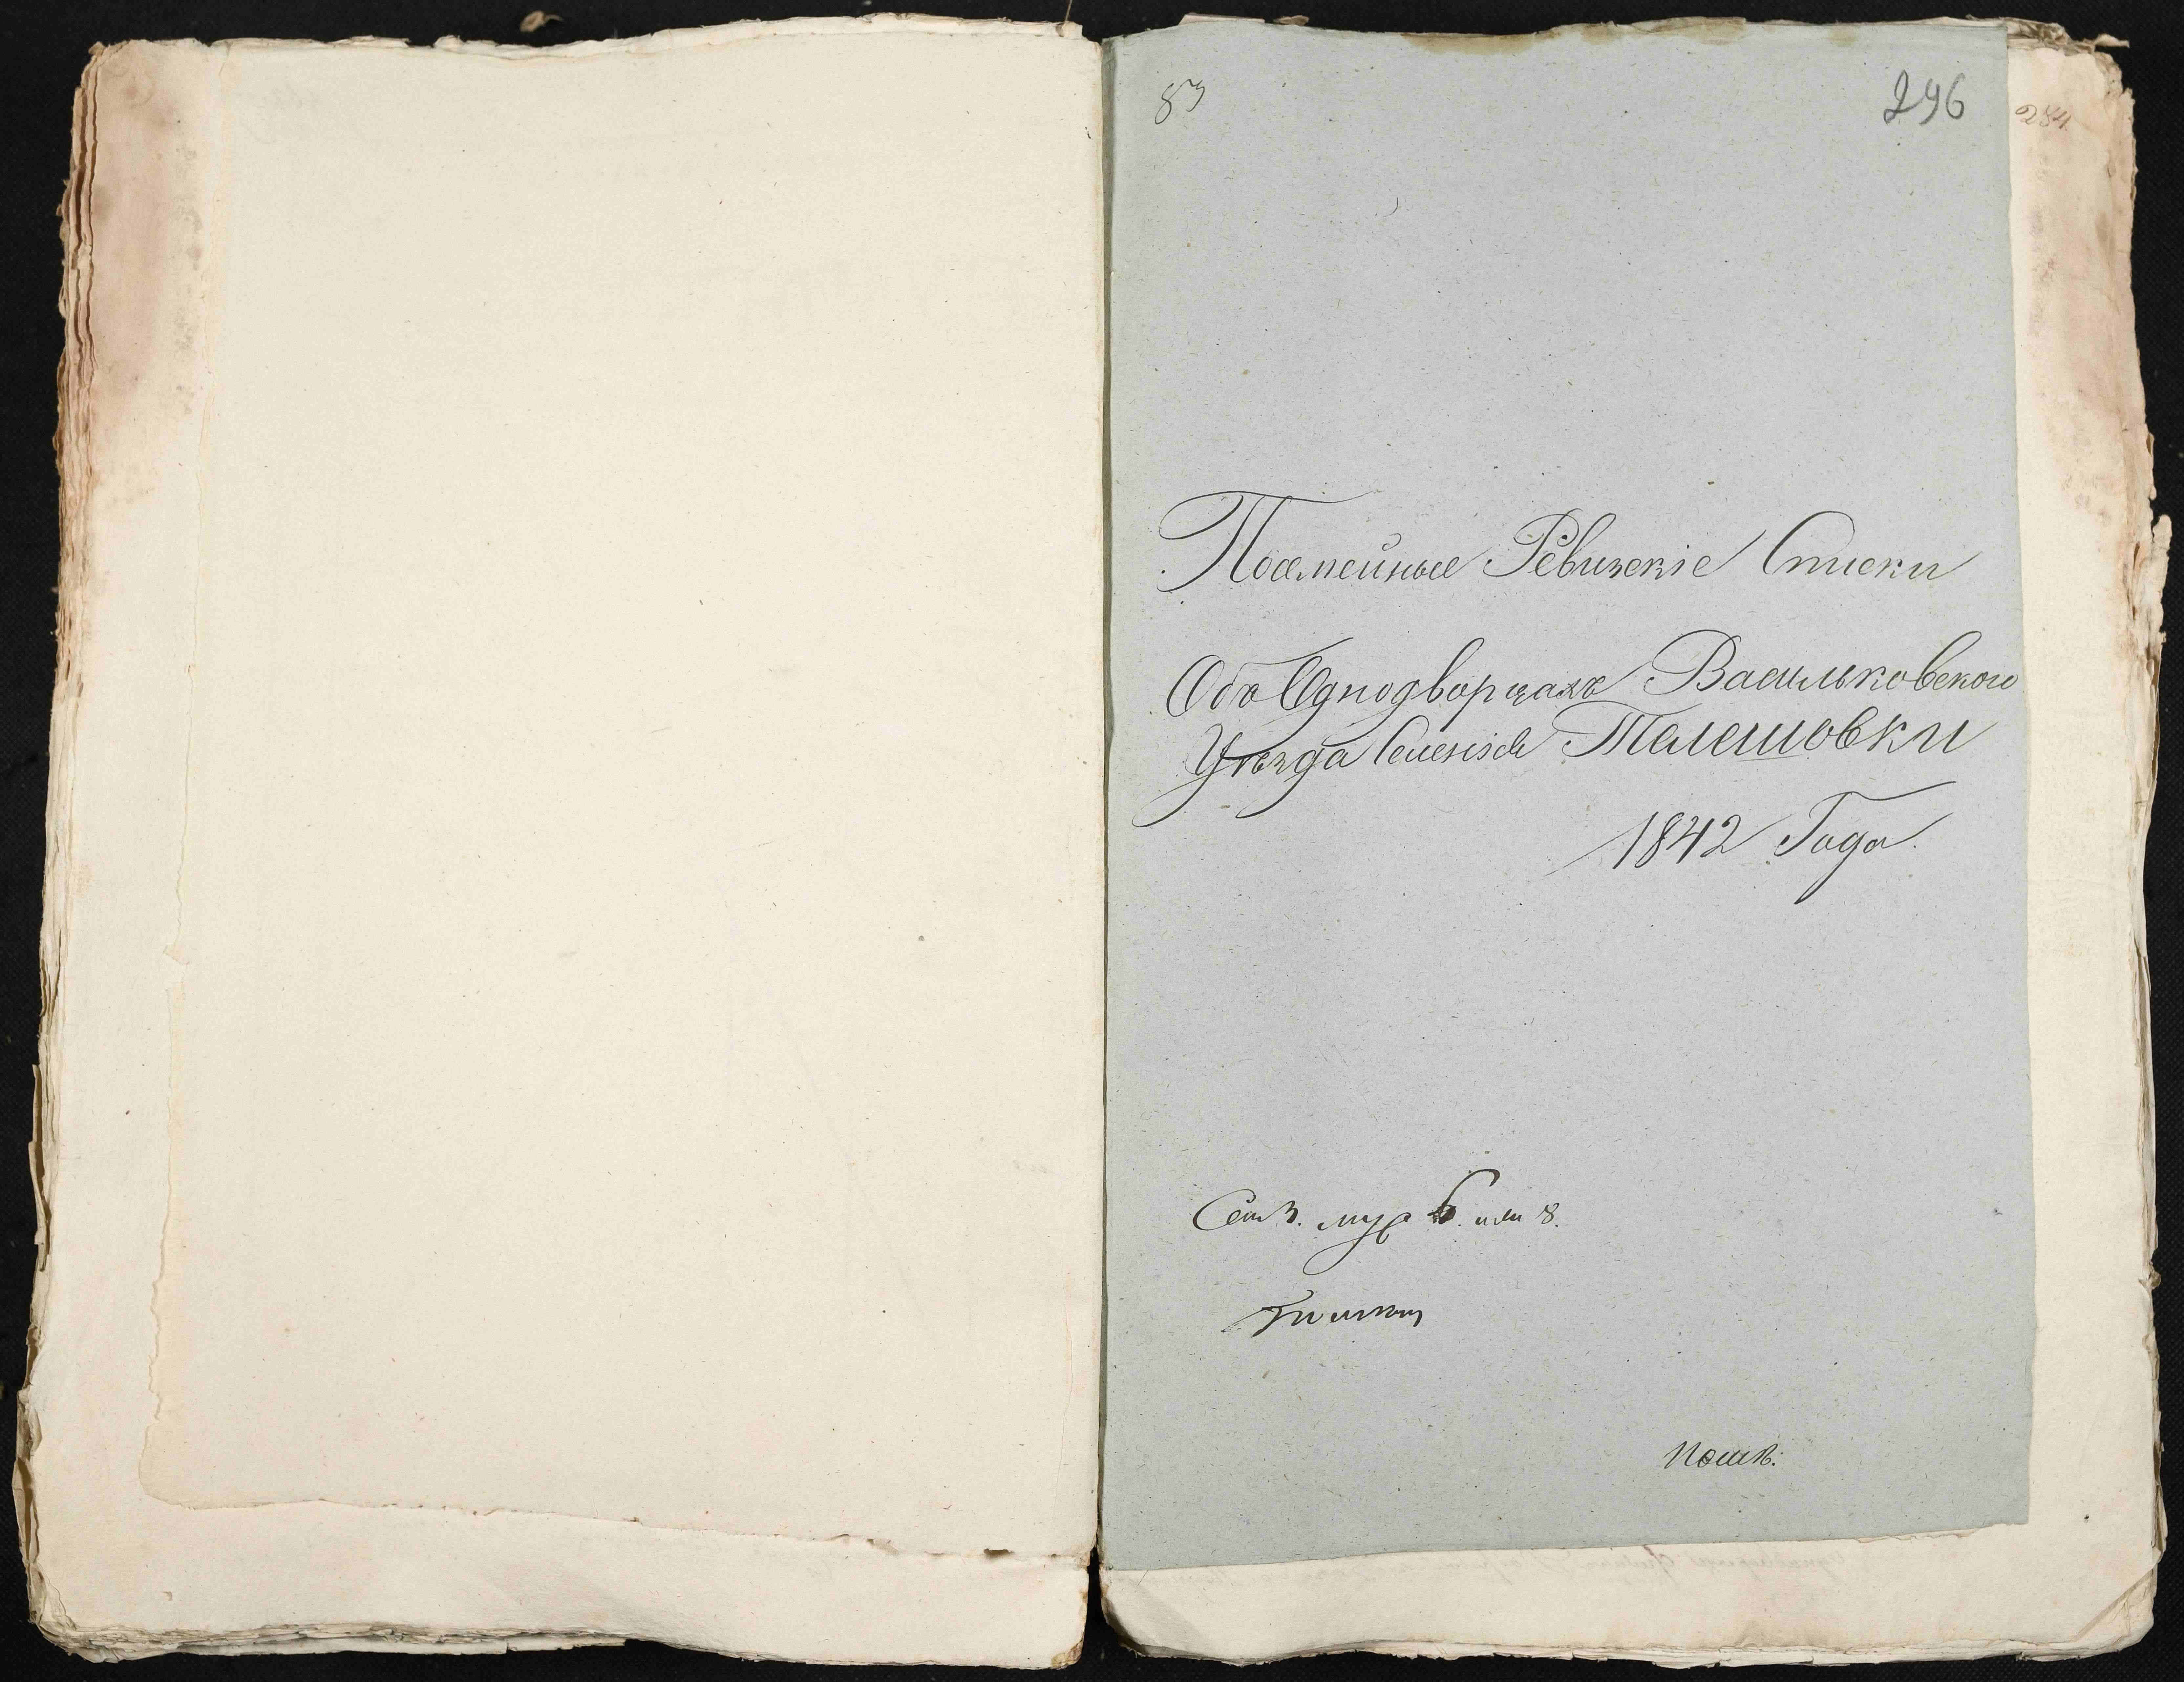 83
296
284
Посемейные Ревизскіе Списки
Объ Однодворцахъ Васильковского
Уѣзда Селенія Телешовки
1842 Года.
Сем 3. муж 6. или 8.